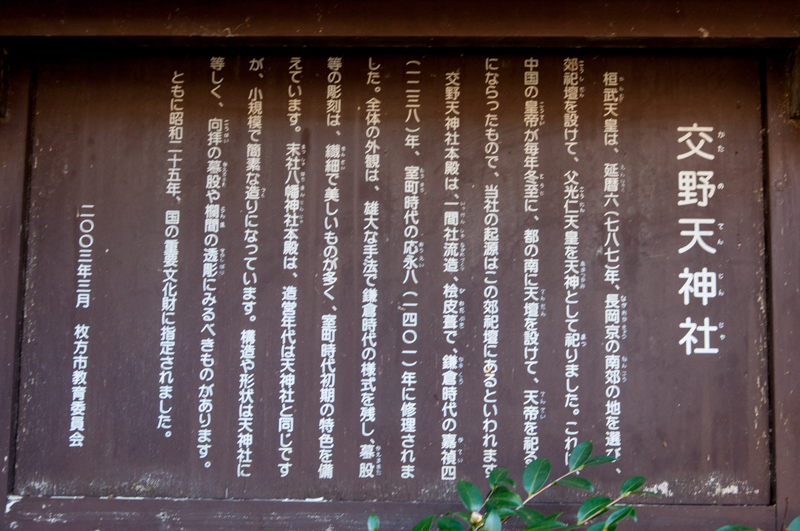 交野天神社
桓武天皇は、延暦六(七八七)年、長岡京の南郊の地を選び、
郊祀壇を設けて、父光仁天皇を天神として祀りました。これは
中国の皇帝が毎年冬至に、都の南に天壇を設けて、天帝を祀る
にならったもので、当社の起源はこの郊祀壇にあるといわれます
交野天神社本殿は、一間社流造、桧皮葺で、鎌倉時代の嘉禎四
(一二三八)年、室町時代の応永八(一四〇一)年に修理されま
した。全体の外観は、雄大な手法で鎌倉時代の様式を残し、蟇股
等の彫刻は、繊細で美しいものが多く、室町時代初期の特色を備
えています。末社八幡神社本殿は、造営年代は天神社と同じです
が、小規模で簡素な造りになっています。構造や形状は天神社に
等しく、向拝の蟇股や欄間の透彫にみるべきものがあります。
ともに昭和二十五年、国の重要文化財に指定されました。
二〇〇三年三月 枚方市教育委員会